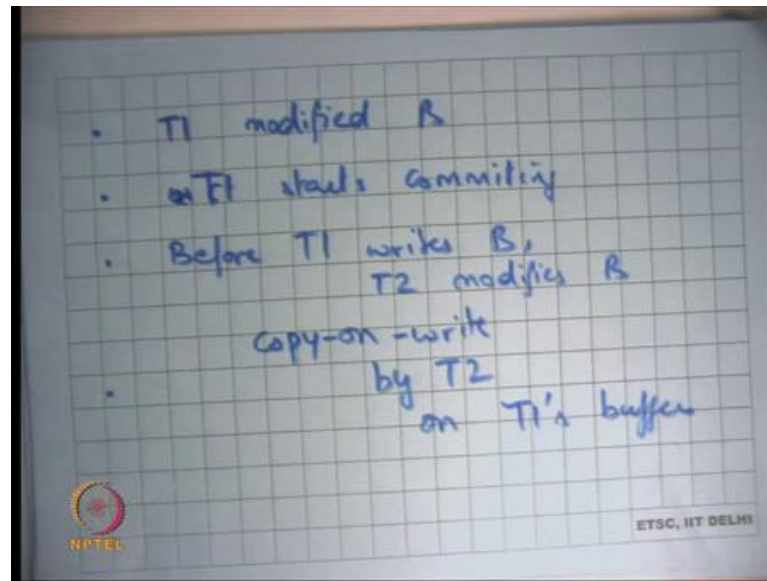 • T1 modified B
• T1 starts commiting
• Before T1 writes B,
T2 modifies B
copy-on-write
• by T2
on T1's buffer
NPTEL
ETSC, IIT DELHI